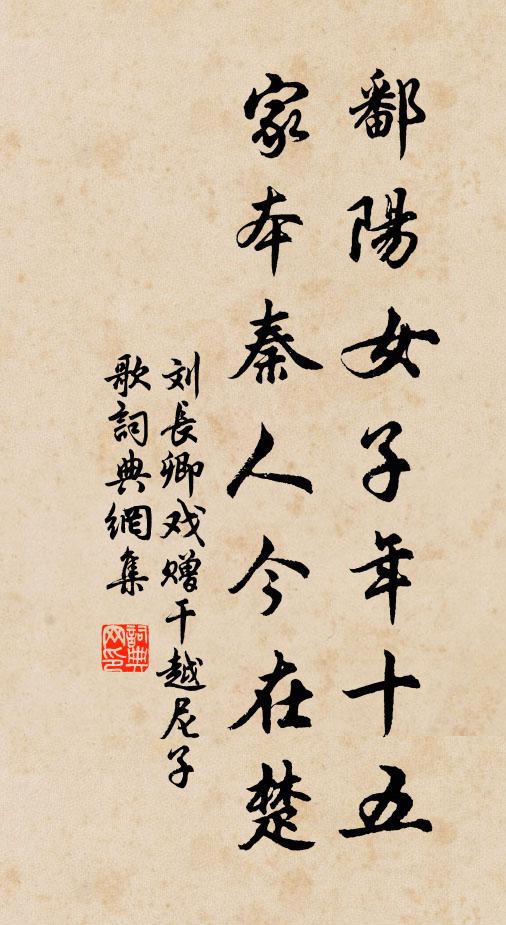 鄱陽女子年十五
家本秦人今在楚
刘長卿戏赠干越尼子
歌詞典網集
詞典网印